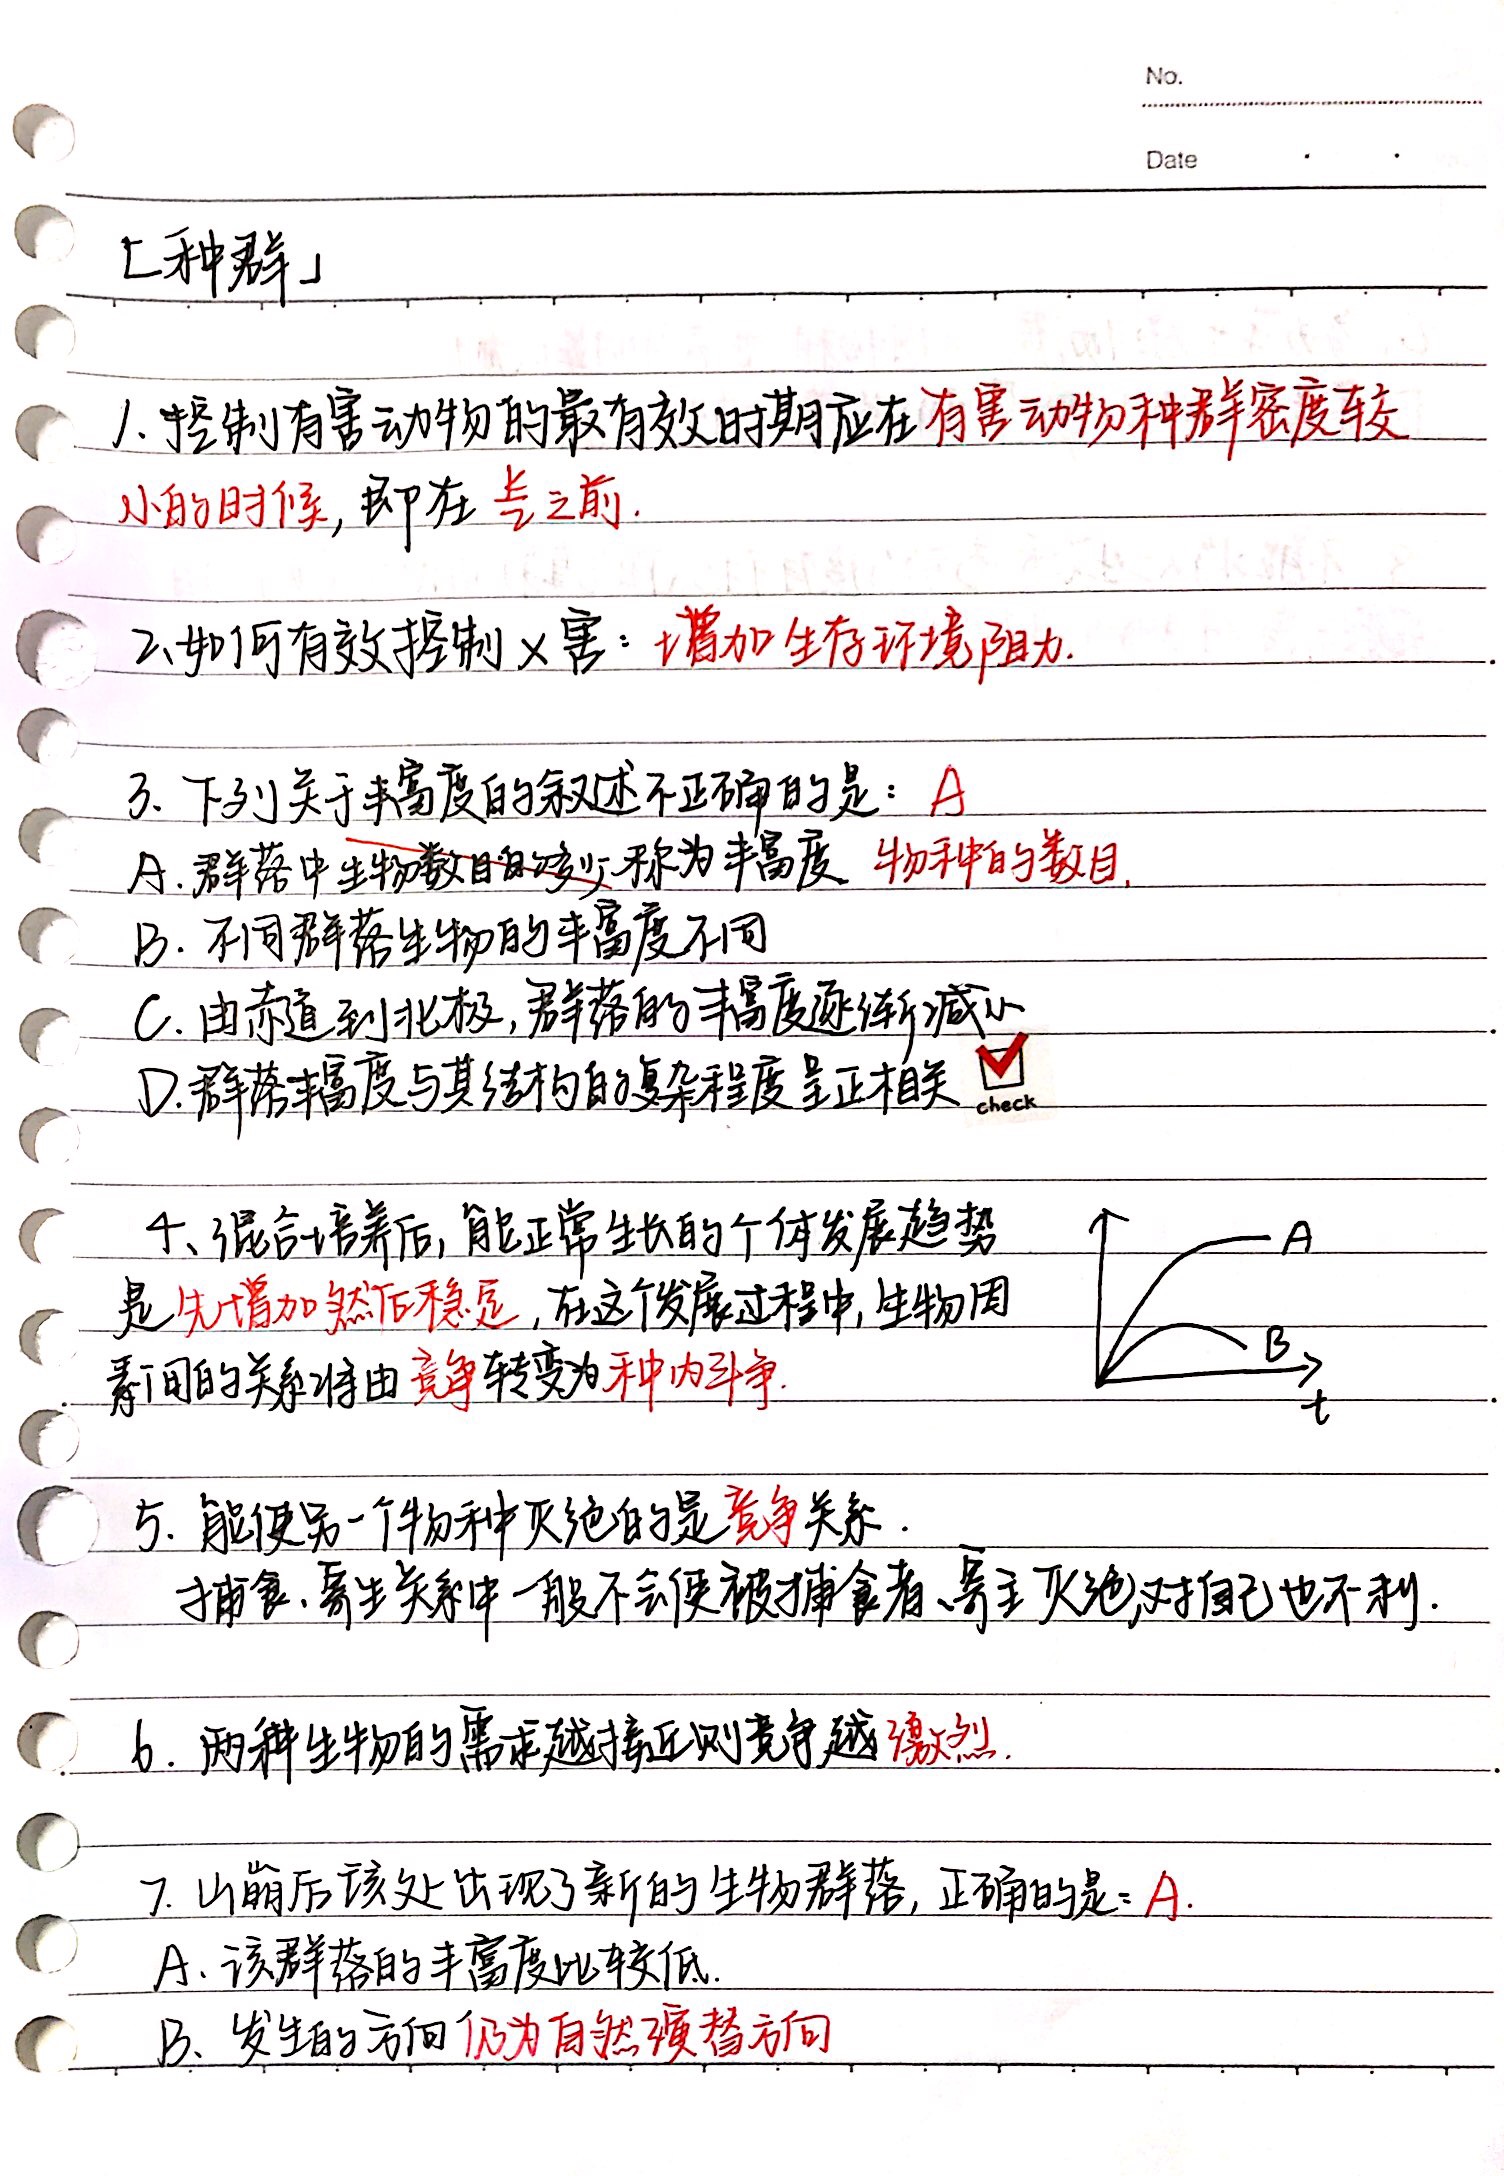 No.
Date
「种群」
1、控制有害动物的最有效时期应在有害动物种群密度较
小的时候，即在 K/2 之前.
2、如何有效控制×害：增加生存环境阻力.
3、下列关于丰富度的叙述不正确的是：A
A.群落中生物数目的多少称为丰富度 物种的数目.
B.不同群落生物的丰富度不同
C.由赤道到北极,群落的丰富度逐渐减小
D.群落丰富度与其结构的复杂程度呈正相关
check
4、混合培养后,能正常生长的个体发展趋势
是先增加然后稳定,在这个发展过程中,生物因
素间的关系将由竞争转变为种内斗争.
A
B
t
5.能使另一个物种灭绝的是竞争关系.
捕食、寄生关系中一般不会使被捕食者、寄主灭绝,对自己也不利.
6.两种生物的需求越接近则竞争越激烈.
7.山崩后该处出现了新的生物群落,正确的是：A.
A、该群落的丰富度比较低.
B、发生的方向仍为自然演替方向